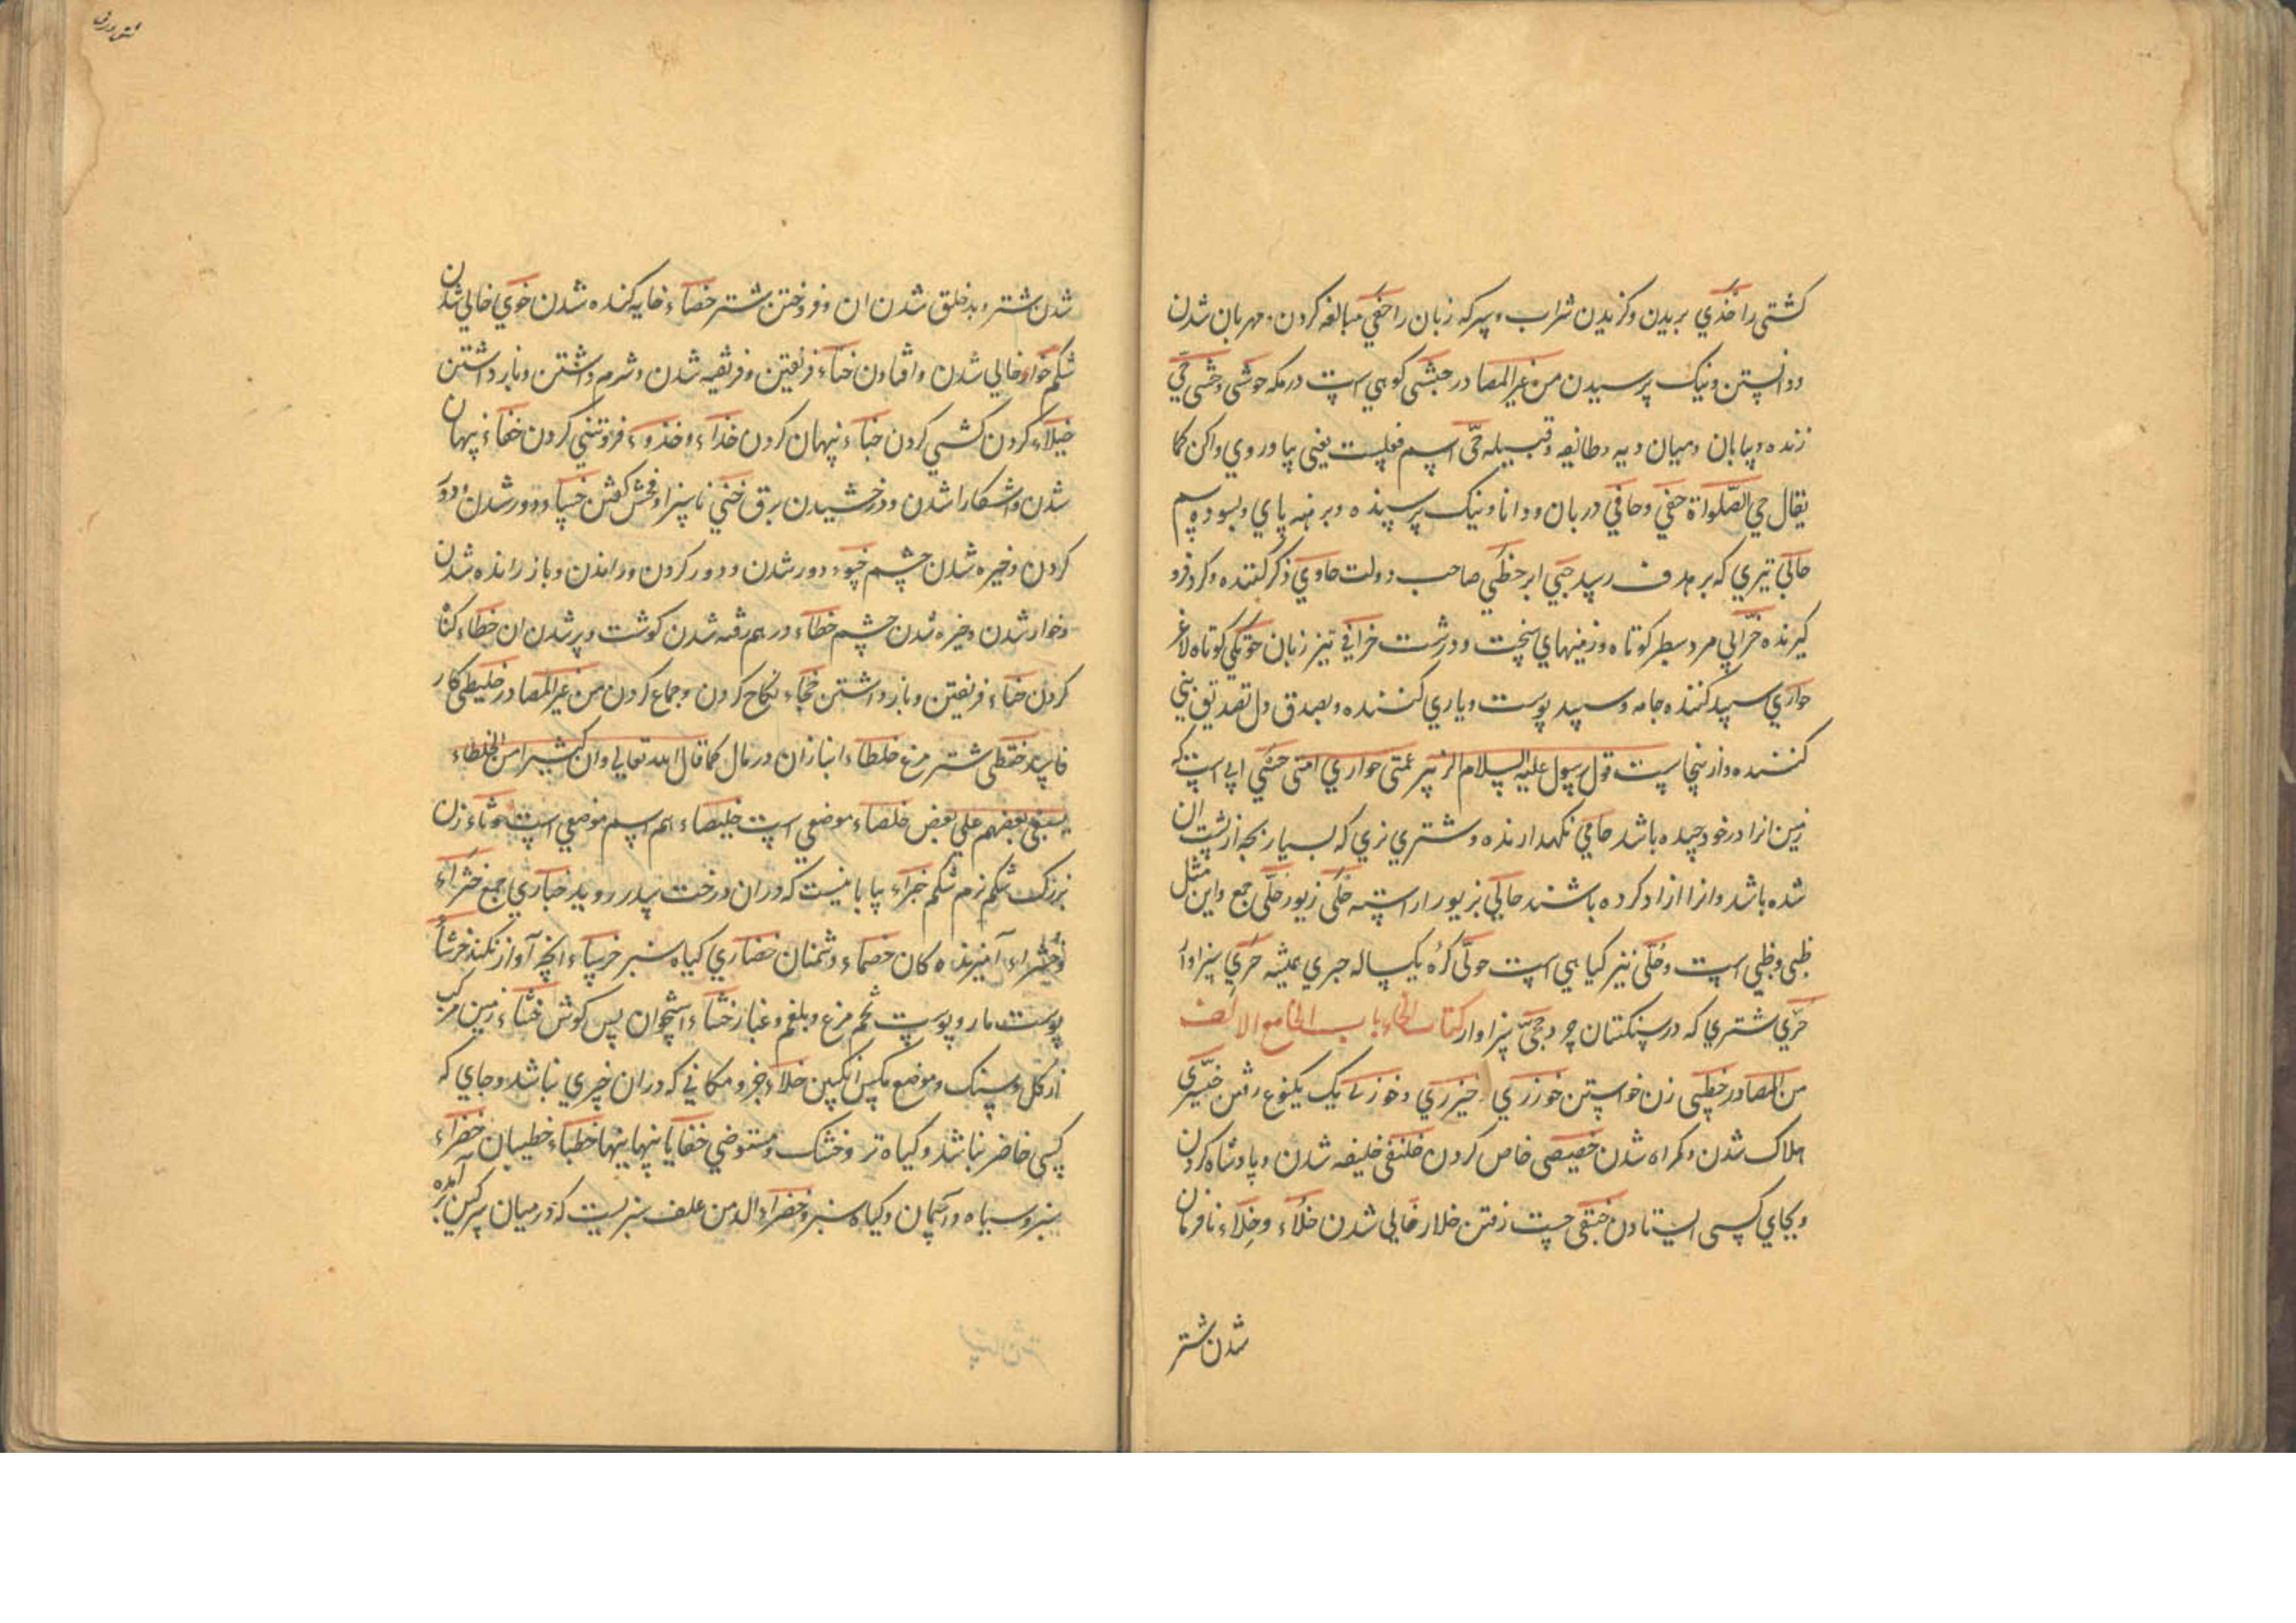 کشتی را حذي بریدن وکزیدن شراب و سرکه زبان را حفي مبالغه کردن و مهربان شدن
ودانستن ونیک پرسیدن من غیر المصادر حبشی کوهي است در مکه حوشی وحشی حي
زنده و بیابان و میان دیه و طائفه وقبیله حیّ اسم فعلست یعنی بیا وروي واکن کما
یقال حي الصلواة حفي وحافي دربان ودانا ونیک پرسنده وبرهنه پاي وبسوده سم
حابي تیري که بر هدف رسد حبي ابر حظي صاحب دولت حاوي ذکر کننده وکرد فرو
کیرنده حزابي مرد سطبر کوتاه وزمینهاي سخت ودرشت حذاقي تیز زبان حوتکي کوتاه لاغر
حواري سپید کننده جامه وسپید پوست ویاري کننده وبصدق دل تصدیق نبي
کننده وازینجاست قول رسول علیه السلام الزبیر عمتی حواري امتی حسي ابي است که
زمین انرا درخود چیده باشد حامي نکهدارنده وشتري نري که بسیار بچه از پشت ان
شده باشد وانرا ازاد کرده باشند حالي بزیور اراسته حلی زیور حلی جمع واین مثل
ظبی وظبي است وحلی نیز کیاهي است حولی کره یکساله حیري همیشه حري سزاوار
حري شتري که در سنکستان چرد حجیّ سزاوار کتاب الخاء باب الخا مع الالف
من المصادر خطبی زن خواستن خوزري و خیزري وخوزلي یک یکنوع رفتن خیسري
هلاک شدن وکمراه شدن خصیصی خاص کردن خلیفی خلیفه شدن وپادشاه کردن
وبجاي کسی ایستادن خبقی چست رفتن خلاء خالي شدن خلاء وخلاء نافرمان
شدن شتر
شدن شتر و بدخلق شدن ان وفروختن شتر خصاء خایه کنده شدن خوي خالي شدن
شکم خواء خالي شدن وافتادن ختاء فریفتن وفریفته شدن وشرم داشتن وبازداشتن
خیلاء کردن کشي کردن خباء پنهان کردن خذاء وخذوء فروتني کردن خفاء پنهان
شدن واشکارا شدن ودرخشیدن برق خني ناسزا وفحش کفتن خسا ودور شدن ودور
کردن وخیره شدن چشم خسوء دور شدن ودور کردن وراندن وباز رانده شدن
وخوار شدن وخیره شدن چشم خظاء درهم رفته شدن کوشت وپر شدن ان خطاء کناه
کردن ختاء فریفتن وبازداشتن خجاء نکاح کردن وجماع کردن من غیر المصادر خلیطی کار
فاسد خقطی شتر مرغ خلطاء انبازان در مال کما قال الله تعالي وان کثیرا من الخلطاء
لیبغی بعضهم علي بعض خلصاء موضعي است خلیصاء هم اسم موضعي است خوثاء زن
بزرک شکم نرم شکم خبراء بیابانیست که دران درخت سدر روید خباري جمع خثراء
وخثراء آمیزنده کان خصماء دشمنان خضاري کیاه سبز خرساء انچه آواز نکند خرشاء
پوست مار وپوست تخم مرغ وبلغم وغبار خشاء استخوان پس کوش خشاء زمین مرکب
از کل وسنک وموضع مکس انکبین خلاء جز ومکاني که دران چیزي نباشد وجاي که
کسی حاضر نباشد وکیاه تر وخشک ومتوضي خفایا پنهانیها خطباء خطیبان خضراء
سبز وسیاه وآسمان وکیاه سبز وخضراء الدمن علف سبزیست که درمیان سرکین بر آمده